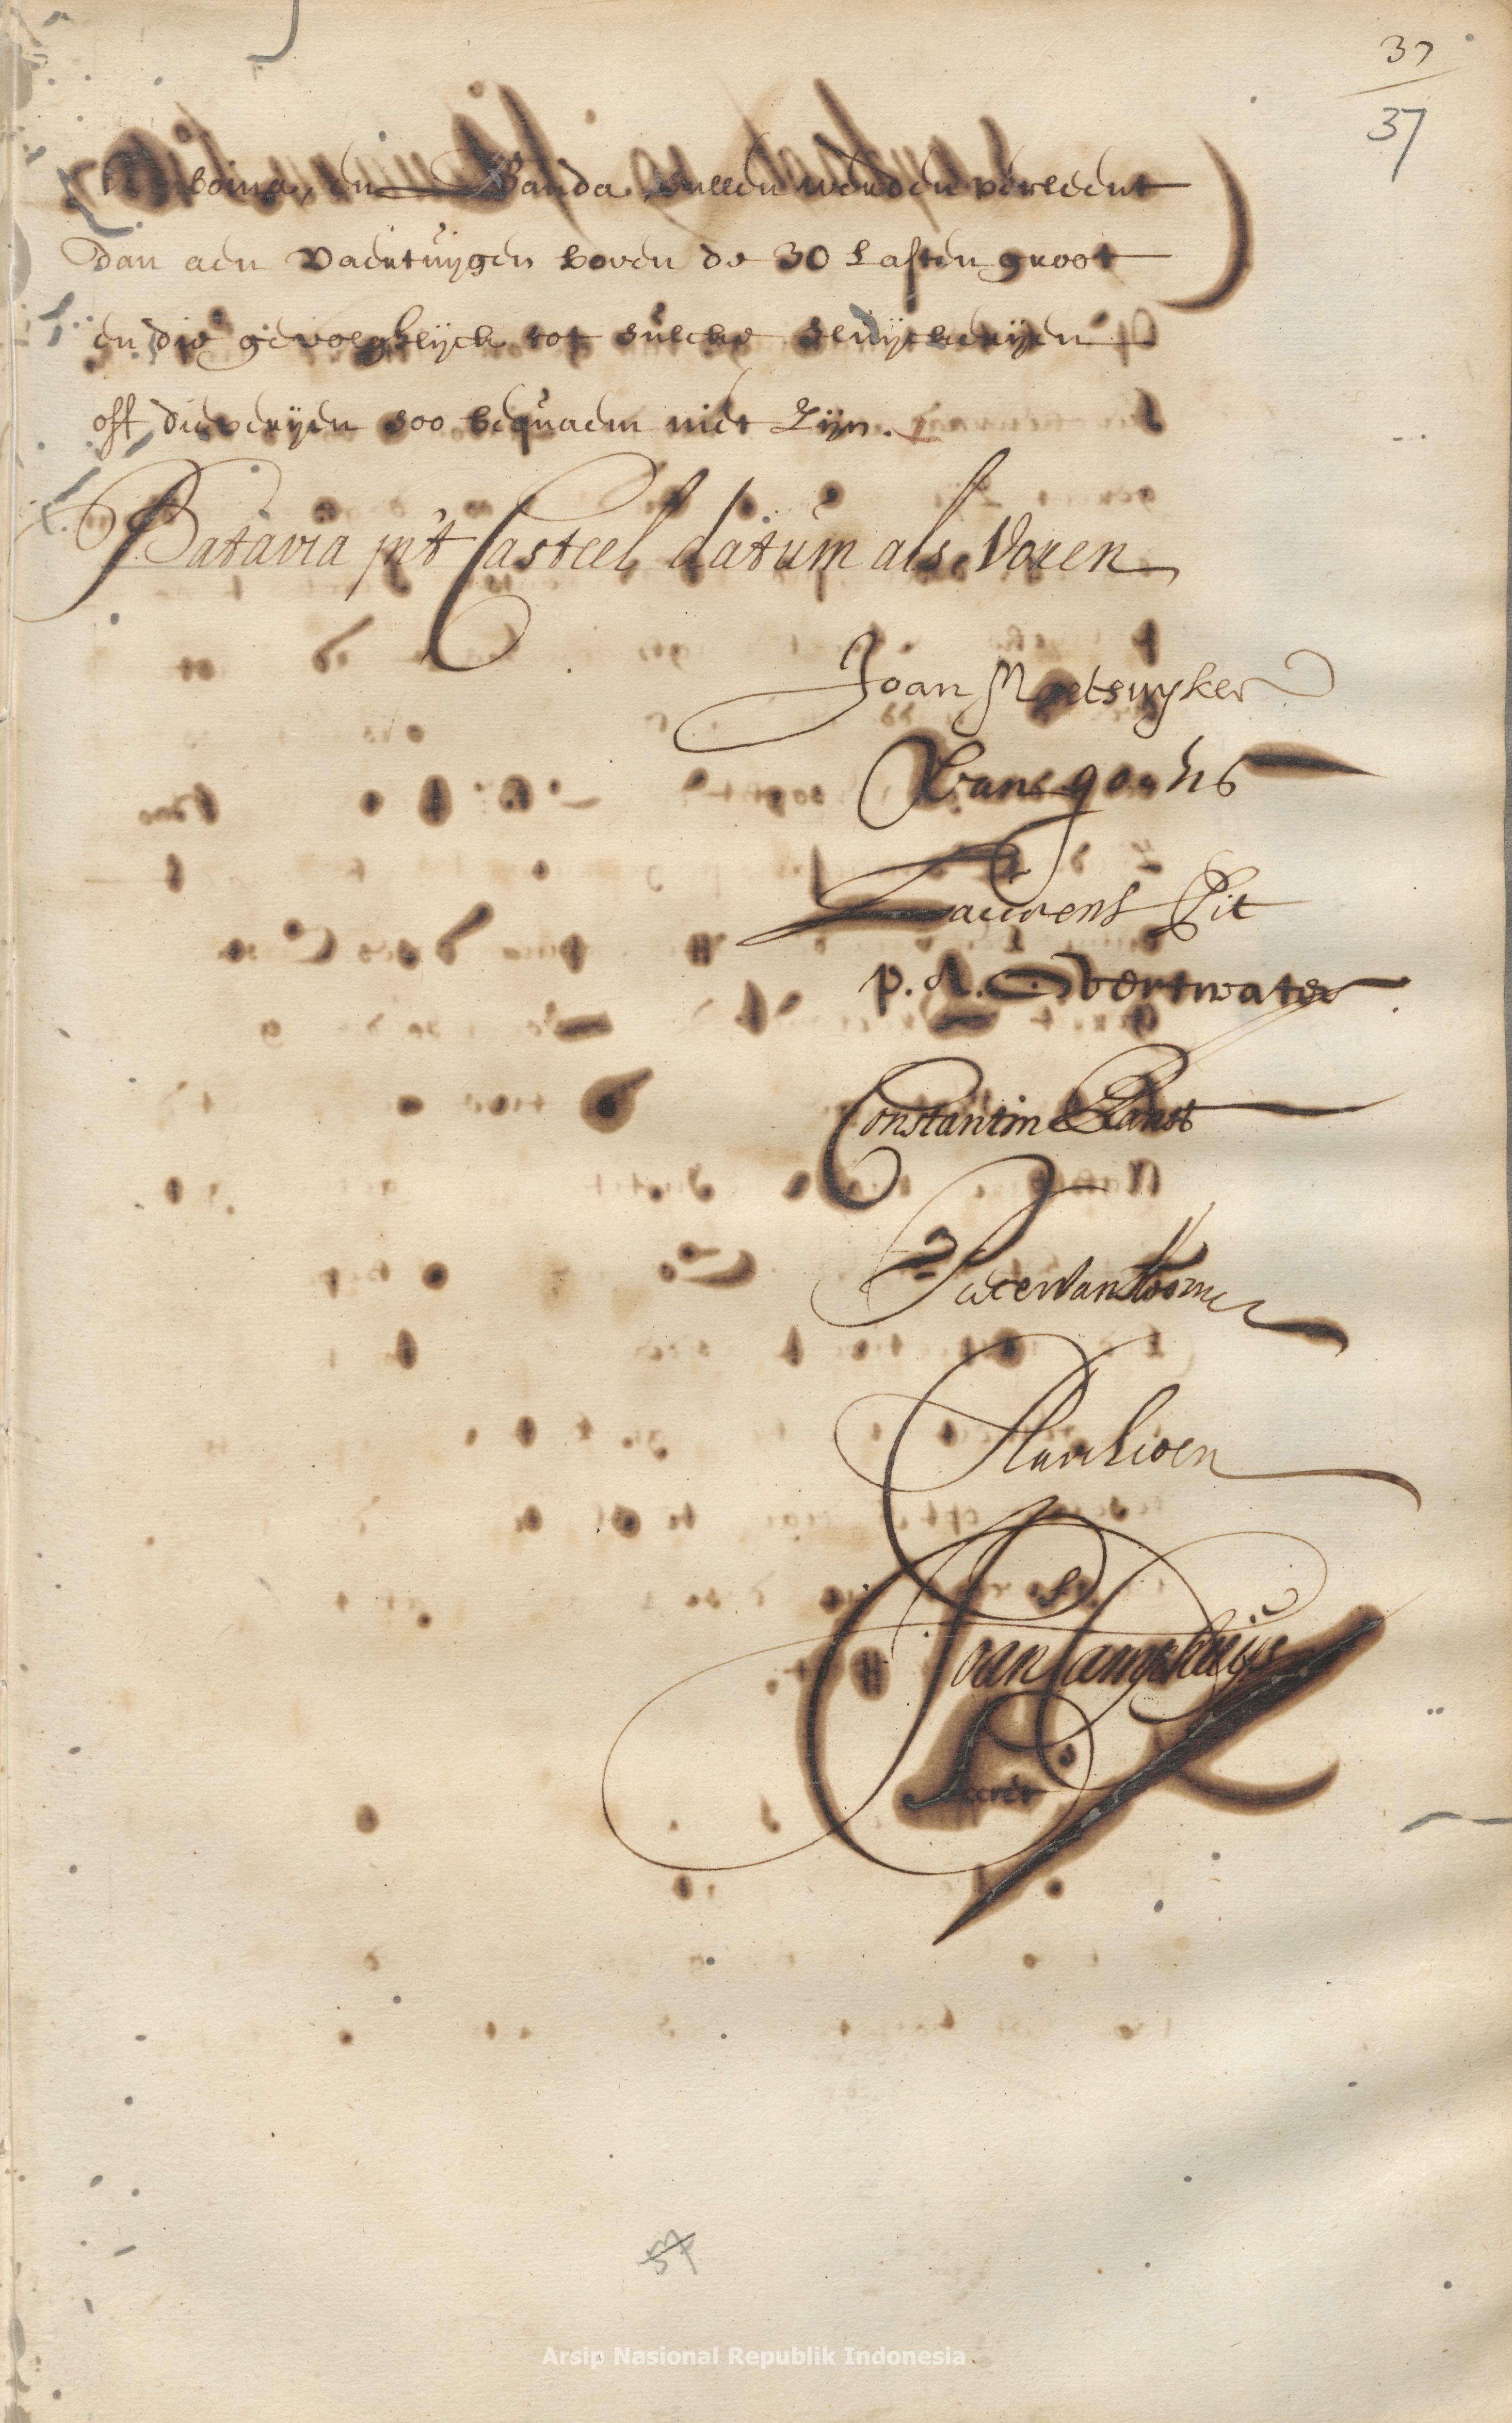 37
37
Amboina, en Banda sullen werden verleent
dan aen Vaertuijgen boven de 30 Lasten groot
en die gevoeghlijck tot sulcke sluijckerijen
off dieverijen soo bequaem niet Zijn.
Batavia jn't Casteel datum als Voren
Joan Maetsuyker
Laurens Pit
p. A. Overtwater
Constantin Ranst
Pieter van Hoorn
Joan Camphuijs
Secrets
57
Arsip Nasional Republik Indonesia